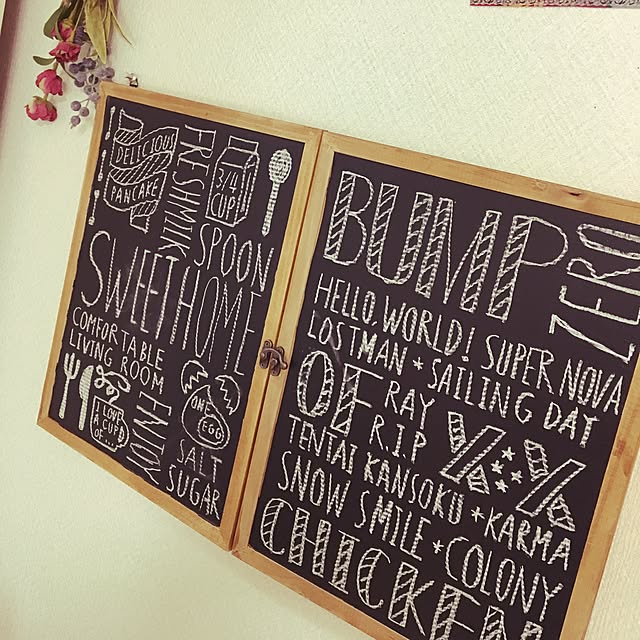 DELICIOUS
PANCAKE
FRESHMILK
3/4
CUP
SPOON
SWEET HOME
COMFORTABLE
LIVING ROOM
I LOVE
A CUP
OF...
ENJOY
ONE
EGG
SALT
SUGAR
BUMP
ZERO
HELLO, WORLD! SUPER NOVA
LOSTMAN * SAILING DAY
OF
RAY
R.I.P
TENTAI KANSOKU * KARMA
SNOW SMILE * COLONY
CHICKEN